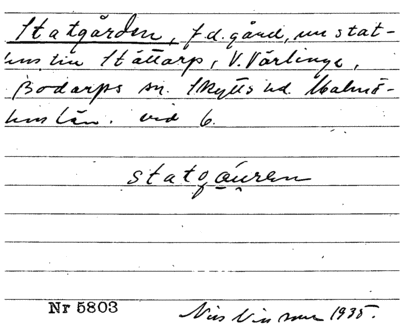 Statgården, f.d. gård, nu stat-
hus till Stättorp, V. Värlinge,
Bodarps sn. Skytts hd. Malmö-
hus län. vid 6.
statgåuren
Nr 5803
Nils Nilsson 1935.